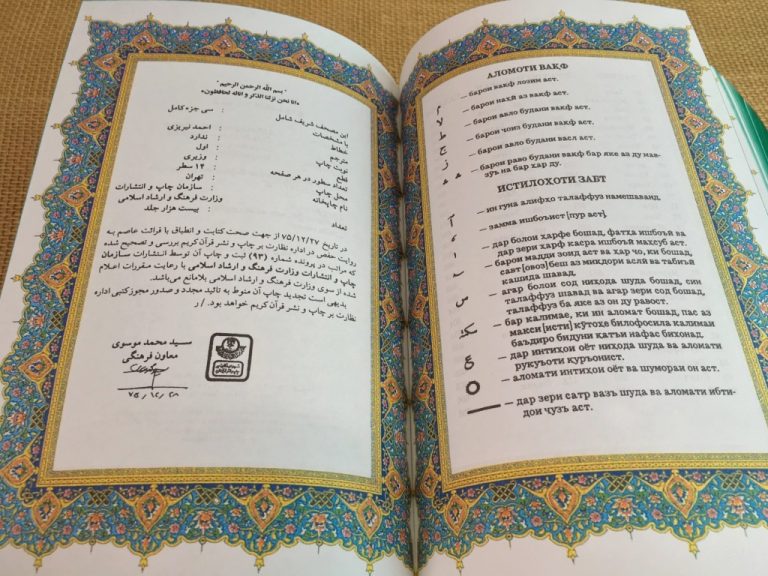 " بسم الله الرحمن الرحیم "
«انا نحن نزلنا الذکر و انا له لحافظون»
این مصحف شریف شامل : سی جزء کامل
با مشخصات :
خطاط : احمد نیریزی
مترجم : ندارد
نوبت چاپ : اول
قطع : وزیری
تعداد سطور در هر صفحه : ۱۴ سطر
محل چاپ : تهران
نام چاپخانه : سازمان چاپ و انتشارات
وزارت فرهنگ و ارشاد اسلامی
تعداد : بیست هزار جلد
در تاریخ ۷۵/۱۲/۲۷ از جهت صحت کتابت و انطباق با قرائت عاصم به
روایت حفص در اداره نظارت بر چاپ و نشر قرآن کریم بررسی و تصحیح شده
که مراتب در پرونده شماره (۹۳) ثبت و چاپ آن توسط انتشارات سازمان
چاپ و انتشارات وزارت فرهنگ و ارشاد اسلامی با رعایت مقررات اعلام
شده از سوی وزارت فرهنگ و ارشاد اسلامی بلامانع می‌باشد.
بدیهی است تجدید چاپ آن منوط به تائید مجدد و صدور مجوز کتبی اداره
نظارت بر چاپ و نشر قرآن کریم خواهد بود. / ر
سید محمد موسوی
معاون فرهنگی
۷۵/۱۲/۲۸
АЛОМОТИ ВАҚФ
م — барои вақф лозим аст.
لا — барои наҳй аз вақф аст.
ط — барои авло будани вақф аст.
ج — барои ҷоиз будани вақф аст.
ز — барои авло будани васл аст.
— барои раво будани вақф бар яке аз ду мавзуъ на бар хар ду.
ИСТИЛОҲОТИ ЗАБТ
— ин гуна алифҳо талаффуз намешаванд.
— замма ишбоъист [пур аст].
— дар болои ҳарфе бошад, фатҳа ишбоъй ва
дар зери ҳарф касра ишбоъй маҳсуб аст.
— барои мадди зоид аст ва ҳар чо, ки бошад,
савт[овоз] беш аз миқдори аслӣ ва табиъй
кашида шавад.
س — агар болои сод ниҳода шуда бошад, син
талаффуз шавад ва агар зери сод бошад,
талаффуз ба яке аз он ду равост.
— бар калимае, ки ин аломат бошад, пас аз
макси [исти] кӯтоҳе билофосила калимаи
баъдиро бидуни қатъи нафас бихонад.
ع — дар интиҳои оёт ниҳода шуда ва аломати
рукуъоти қуръонист.
— аломати интиҳои оёт ва шумораи он аст.
— дар зери сатр вазъ шуда ва аломати ибти-
дои ҷузъ аст.